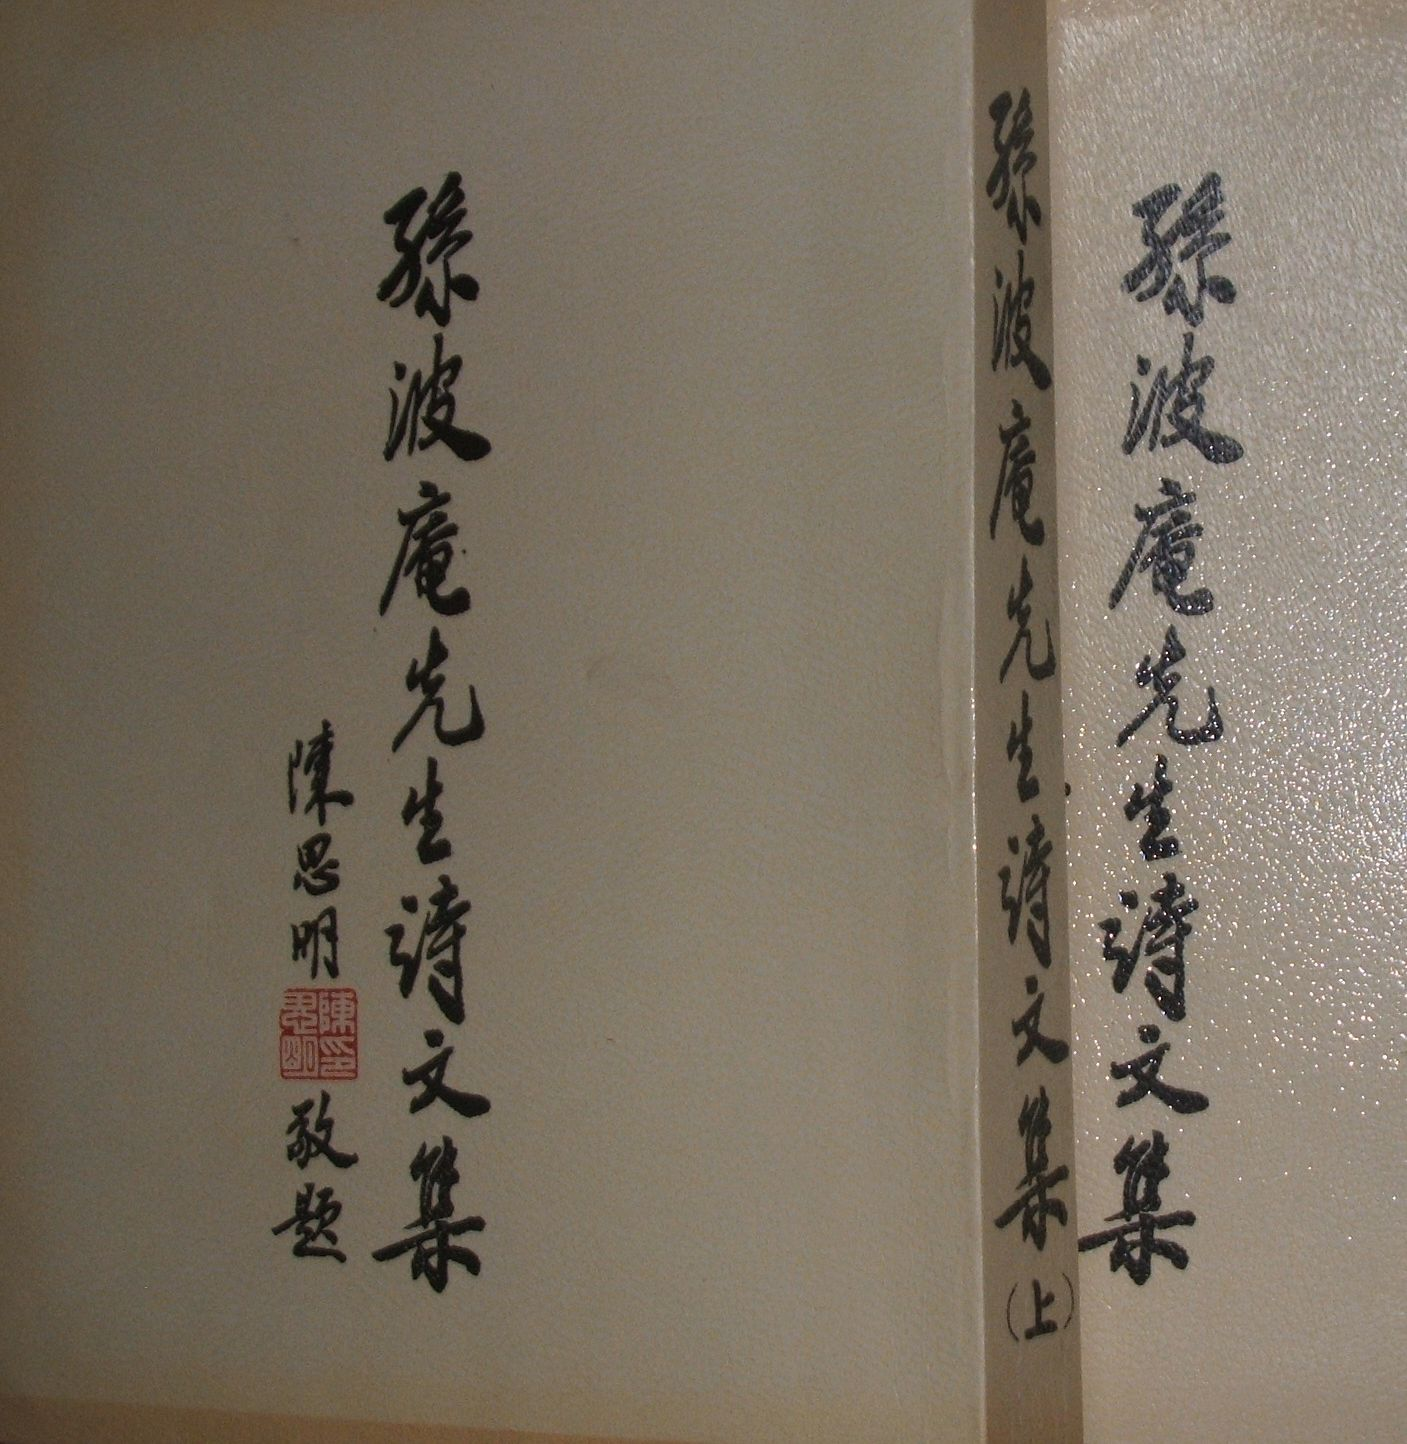 孫波庵先生詩文集
陳思明
陳思明印
敬題
孫波庵先生詩文集（上）
孫波庵先生詩文集